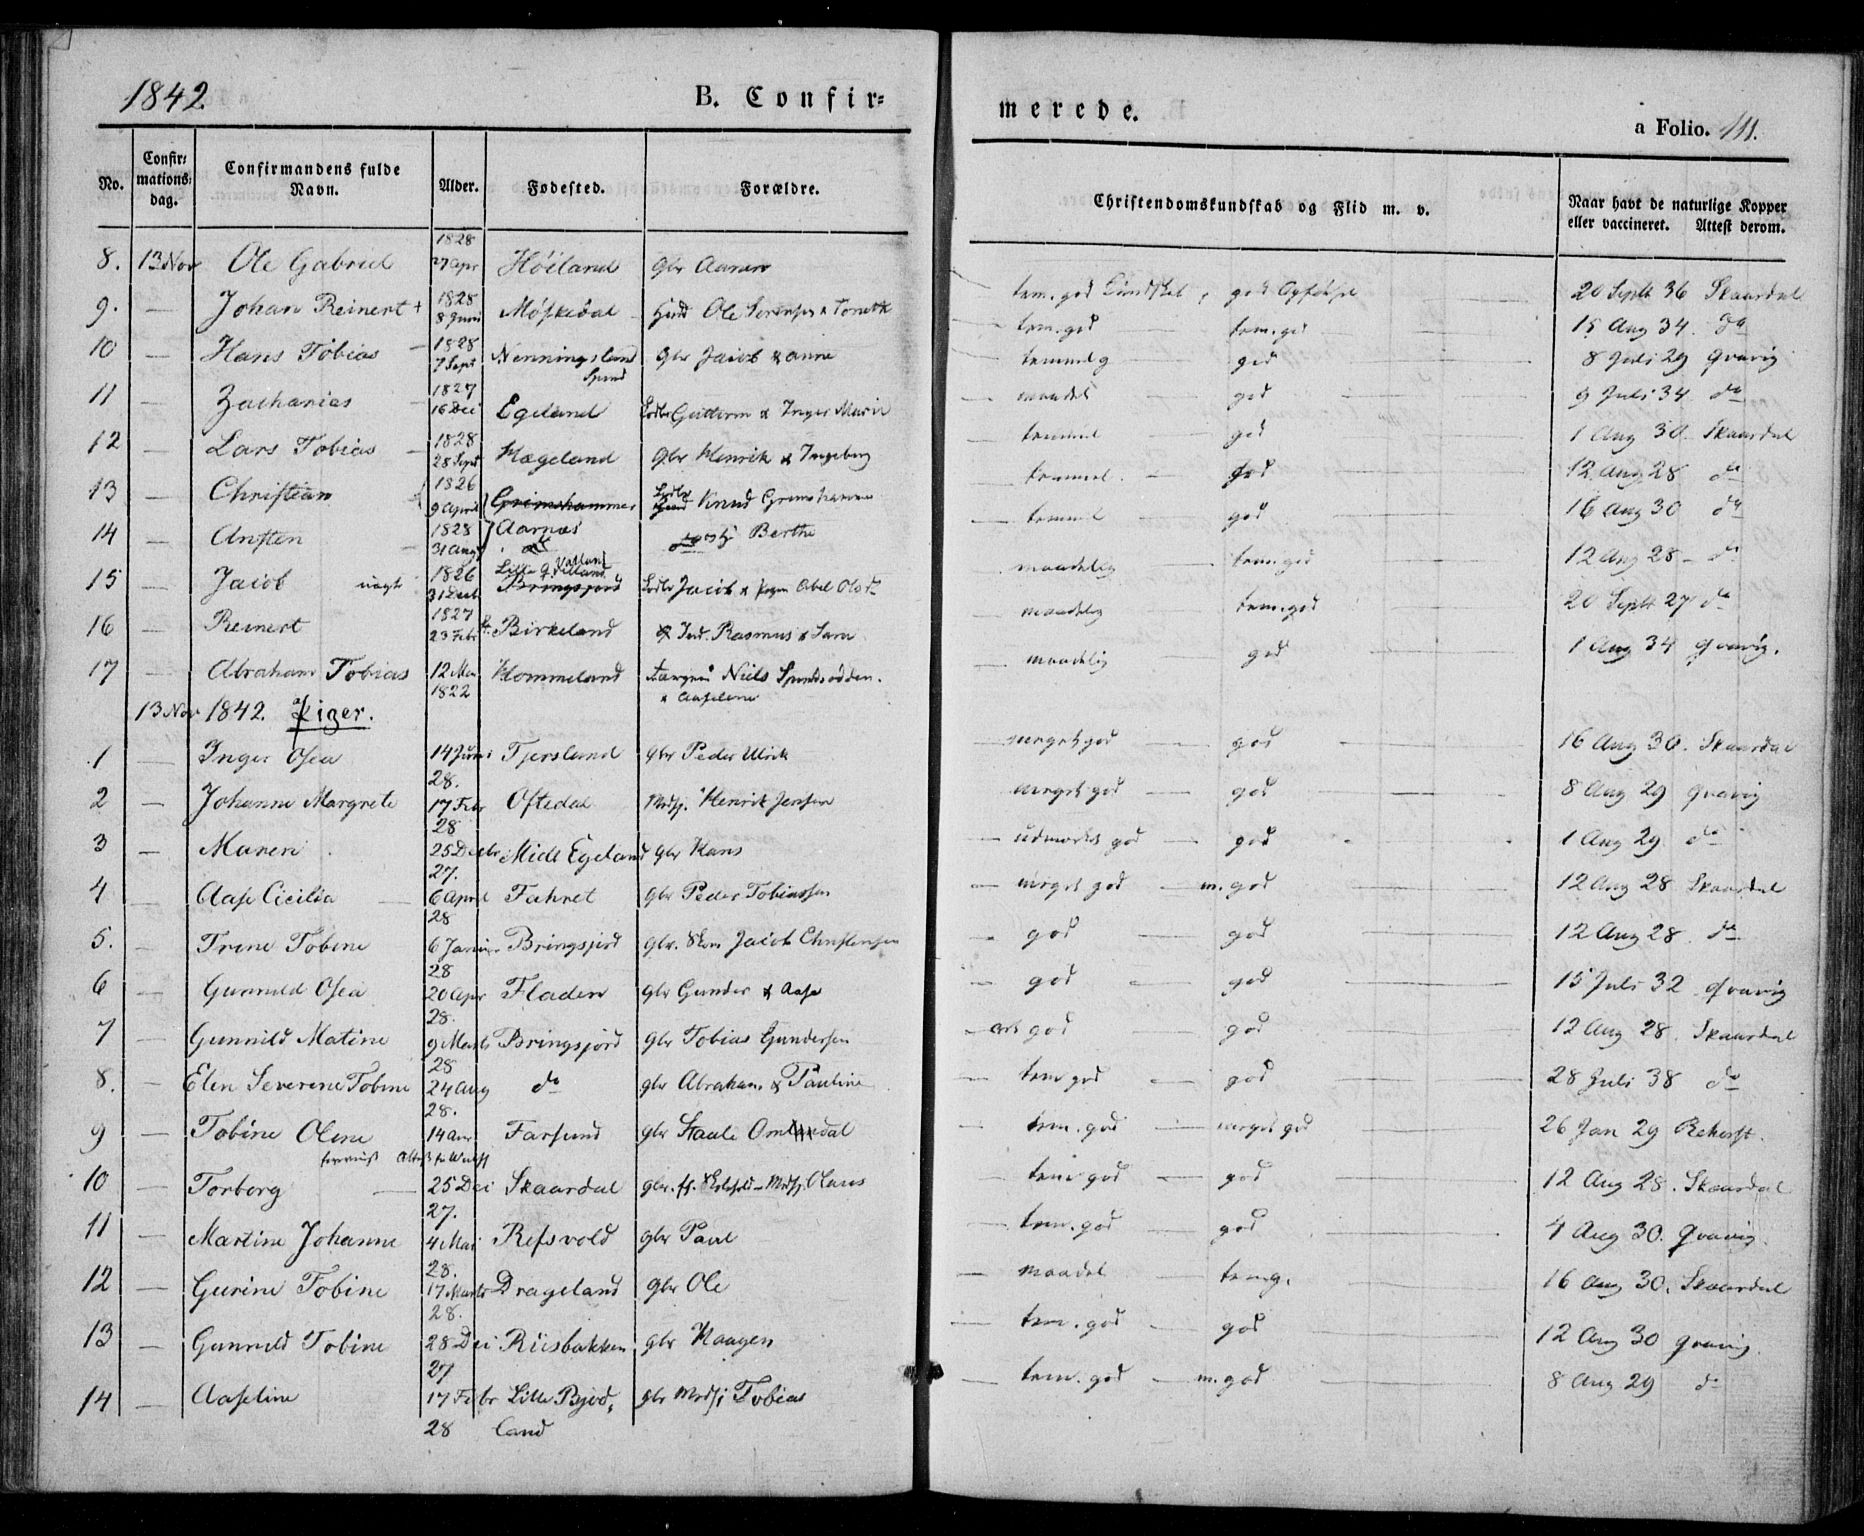 1842. B. Confir=
merede. a Folio. 111.
No. Confir=mations=dag. Confirmandens fulde Navn. Alder. Fødested. Forældre. Christendomskundskab og Flid m. v. Naar havt de naturlige Kopper eller vaccineret. Attest derom.
8. 13 Nov Ole Gabriel 1828 27 Apr Höiland Gbr Aanen tem. god Kundskab, god Opførsel 20 Septb 36 Skaardal
9. — Johan Reinert + 1828 8 Juni Møskedal Ole Sørensen tem. god — tem. god 15 Aug 34. do
10 — Hans Tobias 1828 7 Sept Nenningsland Gbr Jacob & Anne temmelg god 8 Juli 29 Qvavig
11 — Zacharias 1827 16 Dec Egeland Guttorm & Inger Marie maadel god 9 Juli 34 do
12 — Lars Tobias 1828 28 Sept Hægeland Gbr Henrik & Ingeborg temmel god 1 Aug 30. Skaardal
13 — Christian 1826 9 April Grimshammer Knud Grimshamer temmel. — god 12 Aug 28 do
14 — Ansten 1828 31 Aug Aarnæs Berthe temmel god 16 Aug 30 do
15 — Jacob uægt 1826 31 Decb Lille Bringsjord Jacob & Pigen Abel Olsdr maadelig tem. god 12 Aug 28 — do
16 — Reinert 1827 23 Febr Birkeland Rasmus & Sara maadelig tem. god 20 Septb 27 do
17 — Abraham Tobias 12 Mai 1822 Hommeland Niels Spindsodden & Aaselene maadelig god 1 Aug 34 Qvavig.
13 Nov 1842. Piger.
1 — Inger Osea 14 Juni 28. Tjersland gbr Peder Ulrik meget god — god 16 Aug 30. Skaardal
2 — Johanne Margrete 17 Febr 28 Oftedal Mdsj. Henrik Jensen meget god — god 8 Aug 29 Qvavig
3 — Maren 25 Decbr 27. Midt Egeland gbr Hans udmærket god — god 1 Aug 29 do
4 — Aase Cicilia 6 April 28 Fahret gbr Peder Tobiassen meget god — m. god 12 Aug 28 Skaardal
5. — Trine Tobine 6 Januar 28 Bringsjord gbr. Skm Jacob Christensen god — god 12 Aug 28. do
6 — Gunnild Osea 20 Apr 28. Fladen gbr Gunder & Aase god — god 15 Juli 32 Qvavig
7 — Gunnild Matine 9 Marts 28 Bringsjord gbr Tobias Gundersen god — god 12 Aug 28. Skaardal
8. — Elen Severine Tobine 24 Aug 28. do gbr Abraham & Pauline tem god — god 28 Juli 38 do
9 — Tobine Oline 14 Farsund gbr Staale Omlandal tem. god — meget god 26 Jan 29
10 — Torborg 25 Dec 27. Skaardal gbr. Mdsj. Claus tem god — god 12 Aug 28. Skaardal
11 — Martine Johanne 4 Mai 28. Refsvold gbr Paul tem. god — god 4 Aug 30. Qvavig.
12 — Gurine Tobine 17 Marts 28. Drageland gbr Ole maadel — tem g. 16 Aug 30. Skaardal
13 — Gunnild Tobine 28 Dec 27 Riisbakken gbr Haagen tem. god — god 12 Aug 30 Qvavig.
14 — Aaseline 17 Febr 28 Lille Bjødland gbr Mdsj Tobias tem. god — m. god 8 Aug 29 do